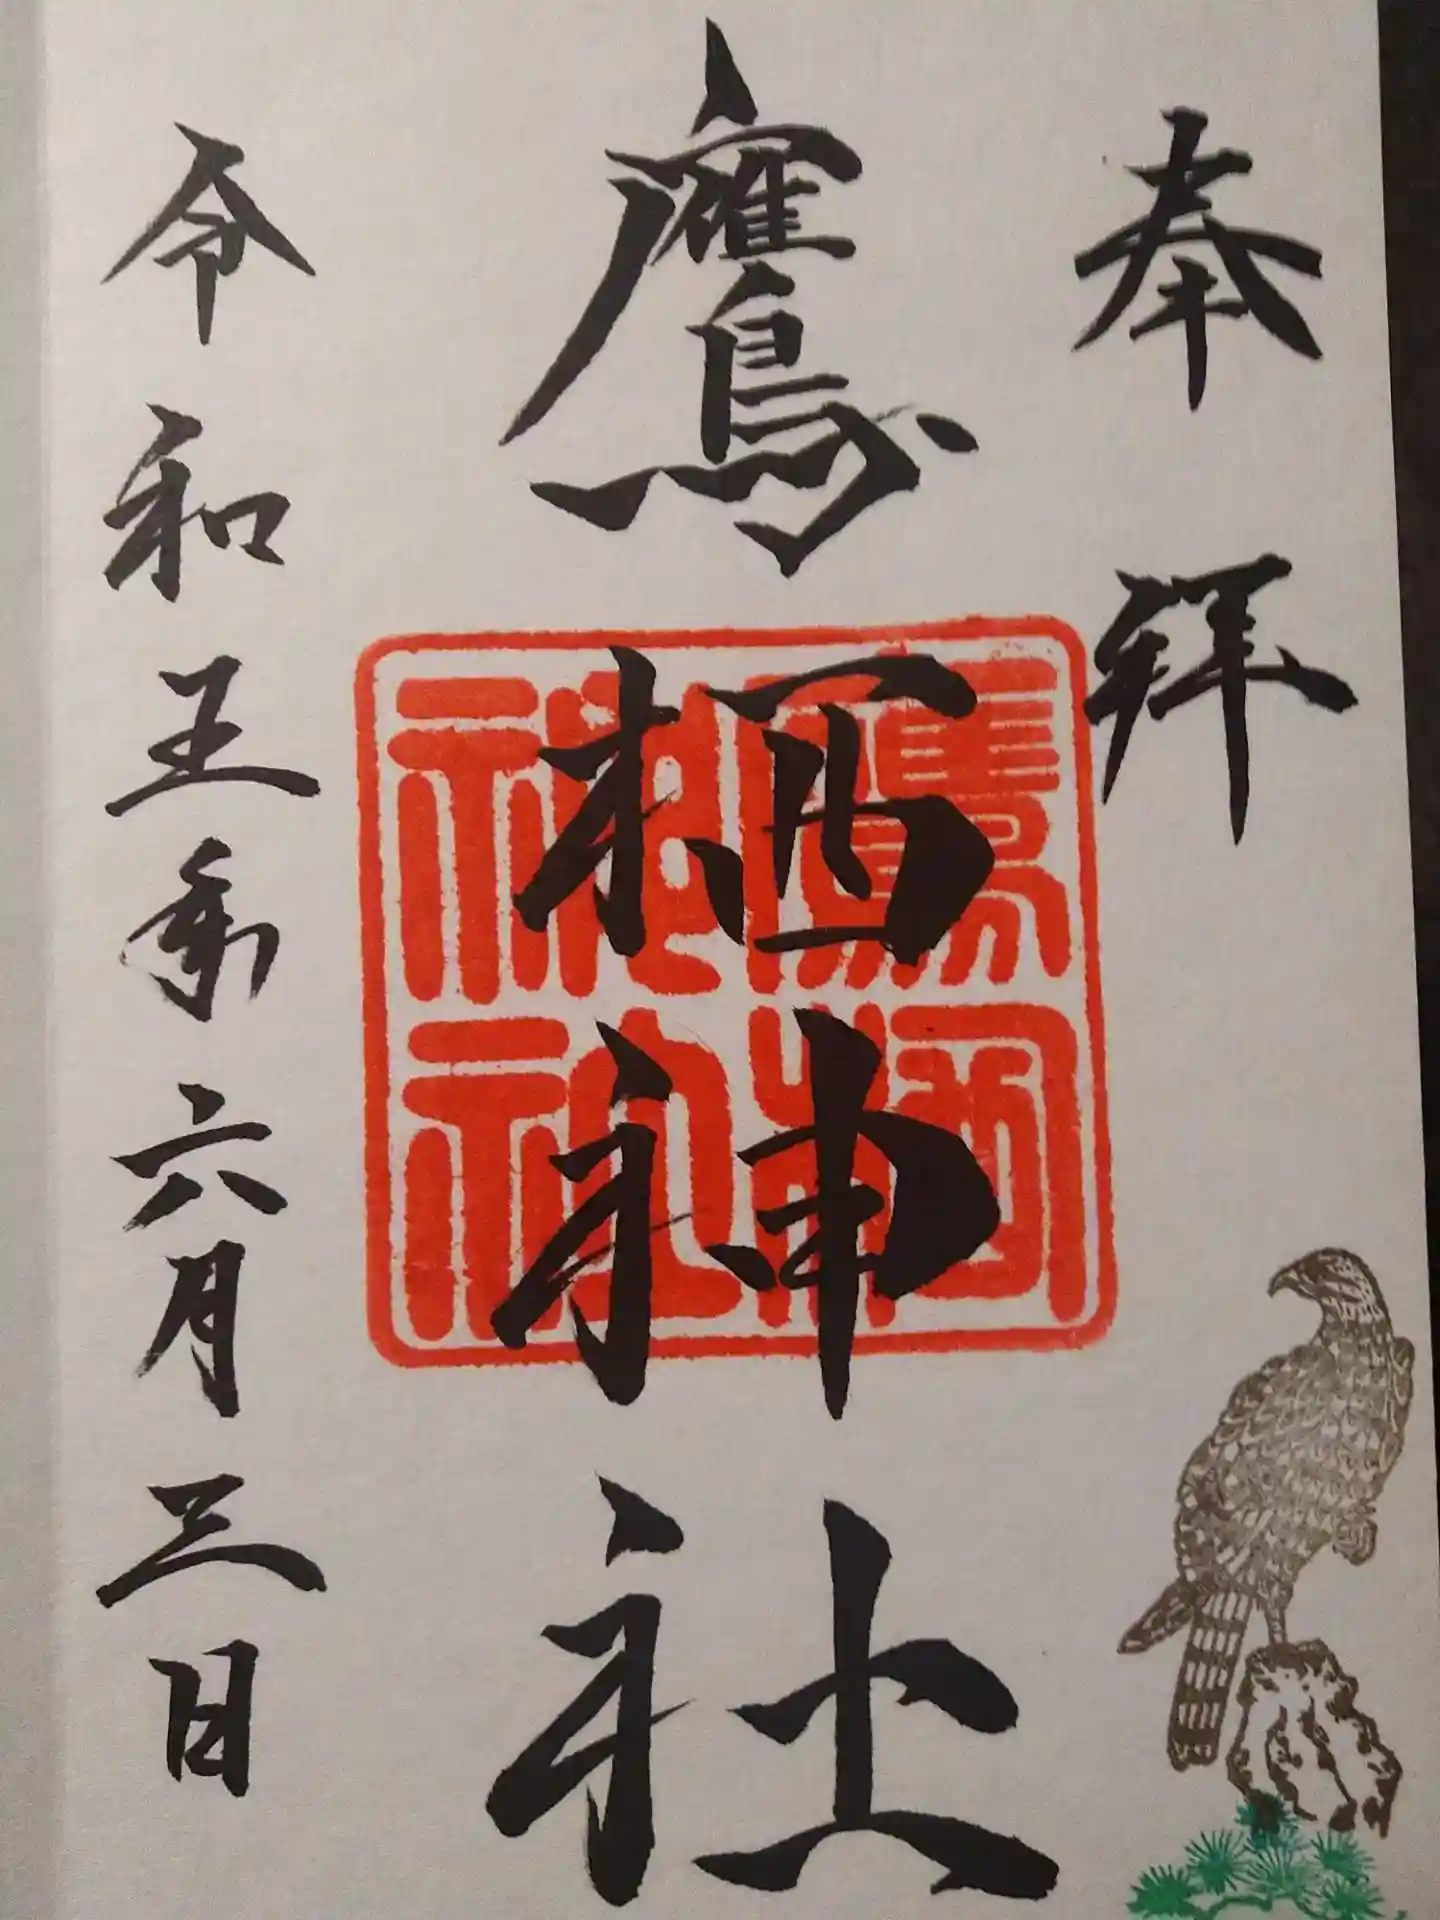 奉拝
鷹栖神社
令和五年六月三日
鷹栖
神社